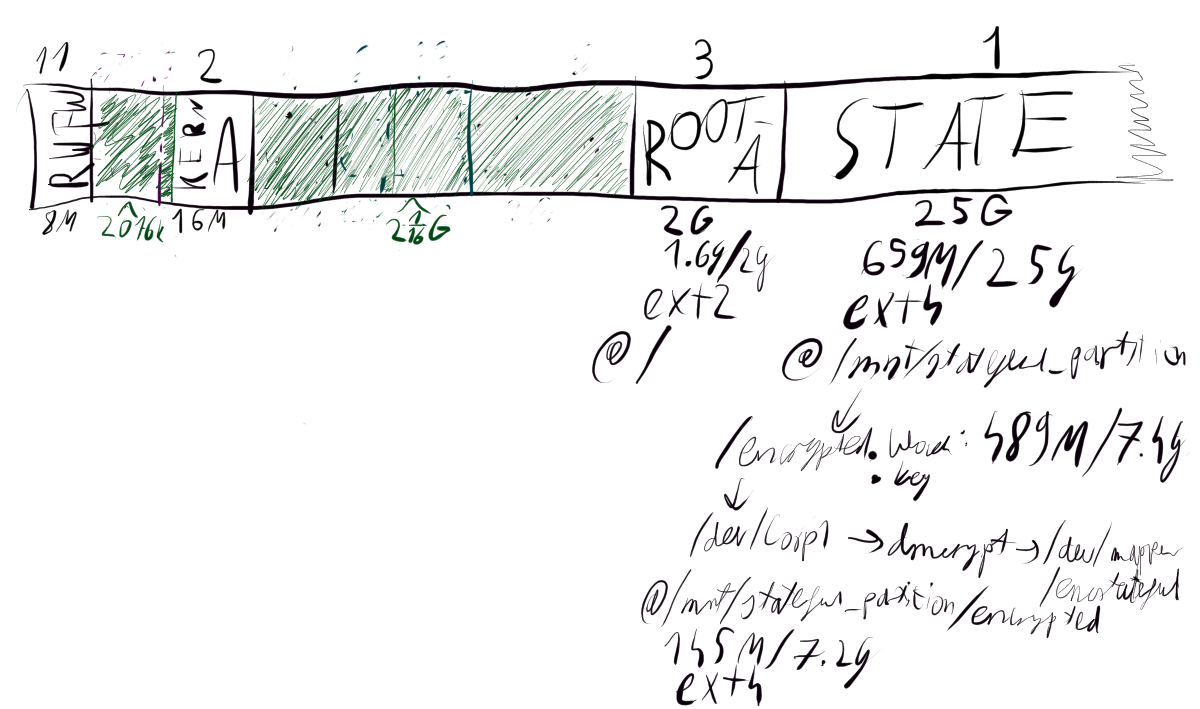 11 2 3 1
RWFW KERN A ROOT-A STATE
8M 2016k 16M 2 1/16 G 2G 25G
1.6g/2g 659M/25g
ext2 ext4
@/ @/mnt/stateful_partition
/encrypted.block: 489M/7.4g
.key
/dev/loop1 → dmcrypt → /dev/mapper
/encstateful
@/mnt/stateful_partition/encrypted
145M/7.2g
ext4